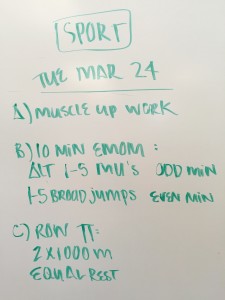 SPORT
TUE MAR 24
A) MUSCLE UP WORK
B) 10 MIN EMOM :
ALT 1-5 MU'S ODD MIN
1-5 BROAD JUMPS EVEN MIN
C) ROW π:
2X1000 M
EQUAL REST